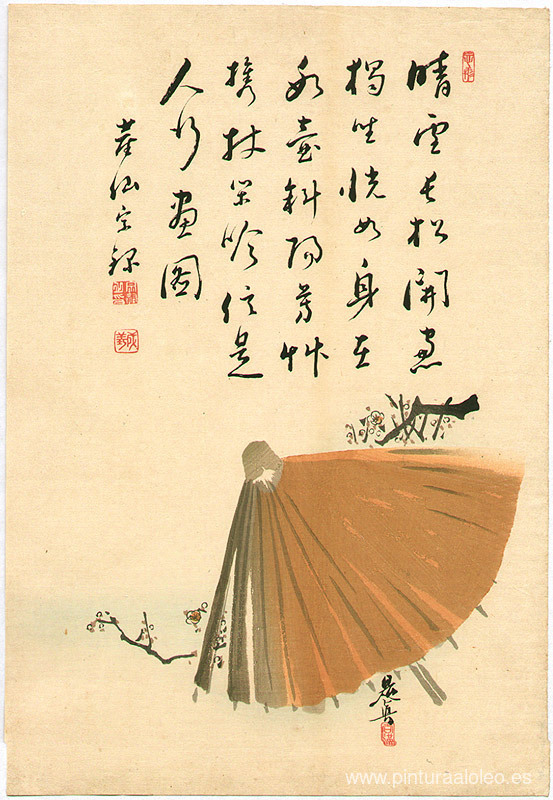 晴雪長松開窓
獨坐恍如身在
氷壺斜陽芳艸
携杖閑吟信是
人行畫圖
是真
www.pinturaaloleo.es